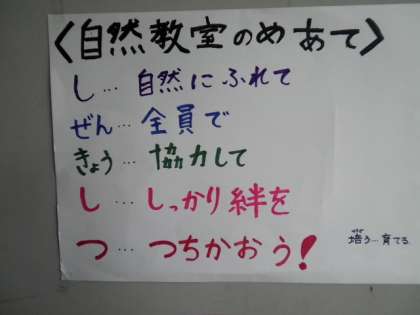 〈自然教室のめあて〉
し…自然にふれて
ぜん…全員で
きょう…協力して
し…しっかり絆を
つ…つちかおう!
培う…育てる